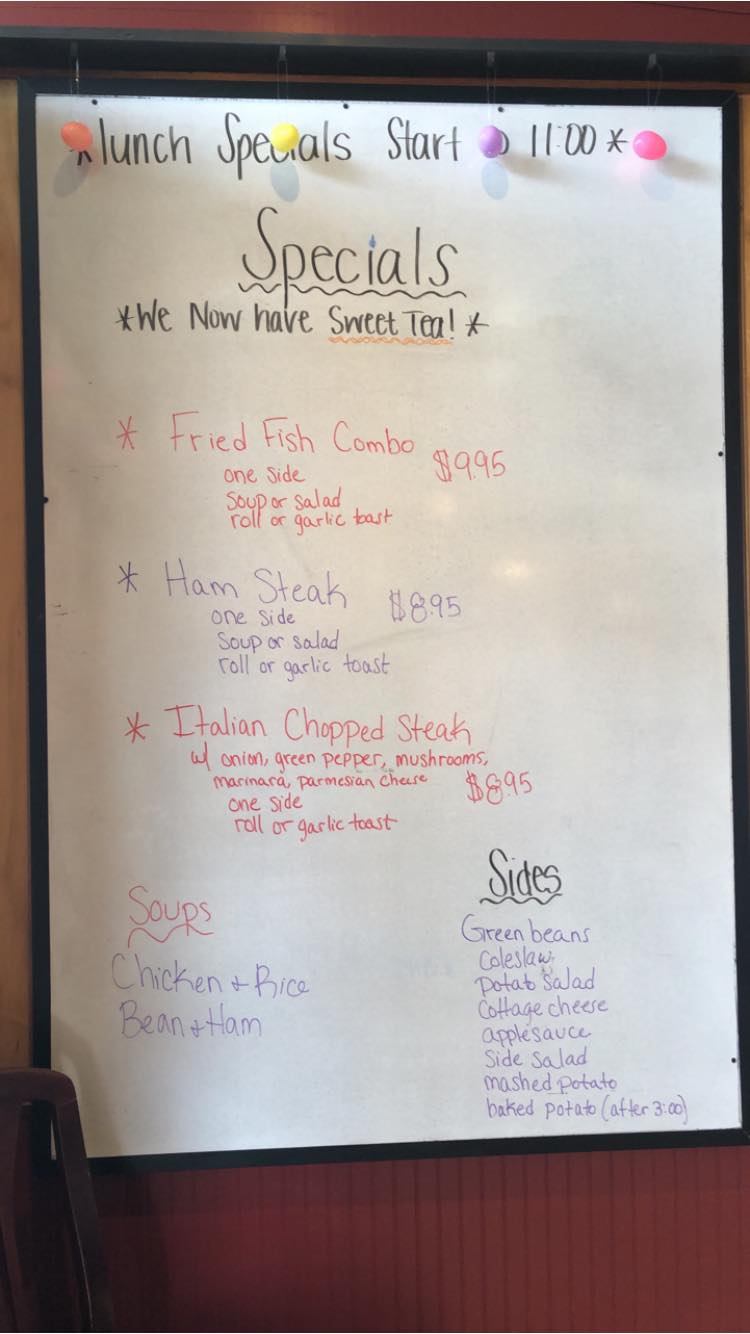 *lunch Specials Start @ 11:00*
Specials
*We Now have Sweet Tea!*
* Fried Fish Combo $9.95
one side
soup or salad
roll or garlic toast
* Ham Steak $8.95
one side
soup or salad
roll or garlic toast
* Italian Chopped Steak
w/ onion, green pepper, mushrooms,
marinara, parmesian cheese $8.95
one side
roll or garlic toast
Soups
Chicken + Rice
Bean + Ham
Sides
Green beans
coleslaw
potato salad
cottage cheese
applesauce
side salad
mashed potato
baked potato (after 3:00)